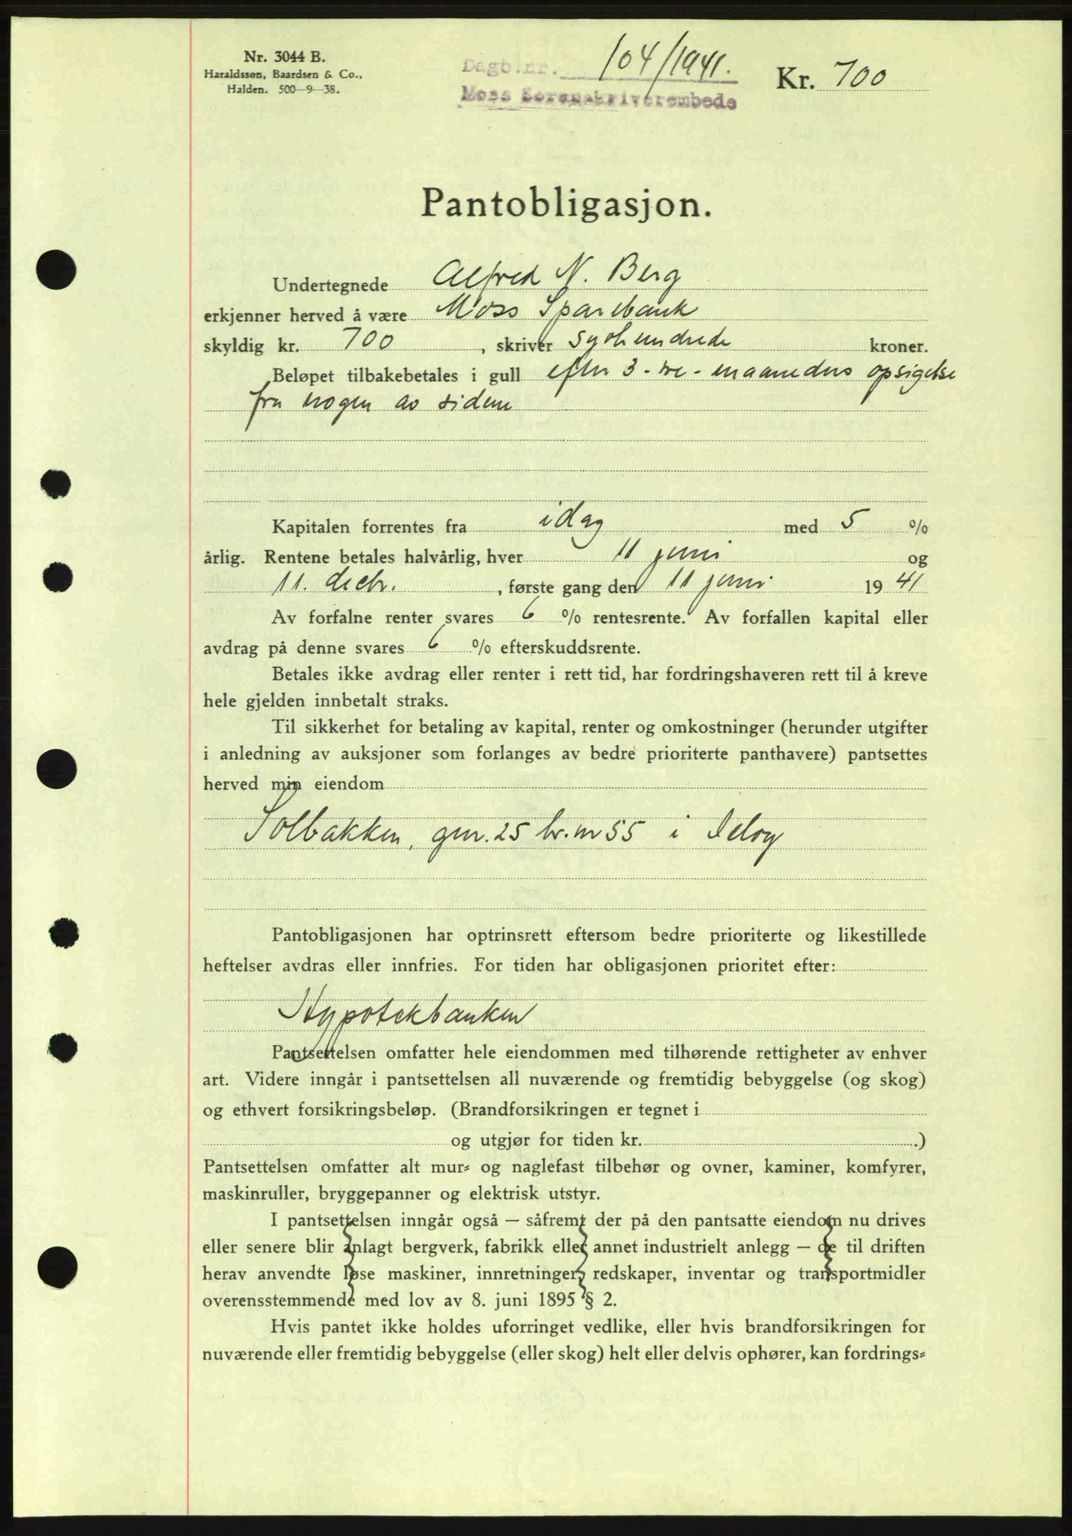 Nr. 3044 B.
Haraldssen, Baardsen & Co.,
Halden. 500—9—38.
Dagb.nr. 104/1941.
Moss Sorenskriverembede
Kr. 700
Pantobligasjon.
Undertegnede Alfred N. Berg
erkjenner herved å være Moss Sparebank
skyldig kr. 700 , skriver syvhundrede kroner.
Beløpet tilbakebetales i gull efter 3-tre-maaneders opsigelse
fra nogen av sidene
Kapitalen forrentes fra idag med 5 %
årlig. Rentene betales halvårlig, hver 11 juni og
11. decbr. , første gang den 11 juni 19 41
Av forfalne renter svares 6 % rentesrente. Av forfallen kapital eller
avdrag på denne svares 6 % efterskuddsrente.
Betales ikke avdrag eller renter i rett tid, har fordringshaveren rett til å kreve
hele gjelden innbetalt straks.
Til sikkerhet for betaling av kapital, renter og omkostninger (herunder utgifter
i anledning av auksjoner som forlanges av bedre prioriterte panthavere) pantsettes
herved min eiendom
Solbakken, gnr. 25 br. nr 55 i Jeløy
Pantobligasjonen har optrinsrett eftersom bedre prioriterte og likestillede
heftelser avdras eller innfries. For tiden har obligasjonen prioritet efter:
Hypotekbanken
Pantsettelsen omfatter hele eiendommen med tilhørende rettigheter av enhver
art. Videre inngår i pantsettelsen all nuværende og fremtidig bebyggelse (og skog)
og ethvert forsikringsbeløp. (Brandforsikringen er tegnet i
og utgjør for tiden kr. )
Pantsettelsen omfatter alt mur- og naglefast tilbehør og ovner, kaminer, komfyrer,
maskinruller, bryggepanner og elektrisk utstyr.
I pantsettelsen inngår også — såfremt der på den pantsatte eiendom nu drives
eller senere blir anlagt bergverk, fabrikk eller annet industrielt anlegg — de til driften
herav anvendte løse maskiner, innretninger, redskaper, inventar og transportmidler
overensstemmende med lov av 8. juni 1895 § 2.
Hvis pantet ikke holdes uforringet vedlike, eller hvis brandforsikringen for
nuværende eller fremtidig bebyggelse (eller skog) helt eller delvis ophører, kan fordrings-